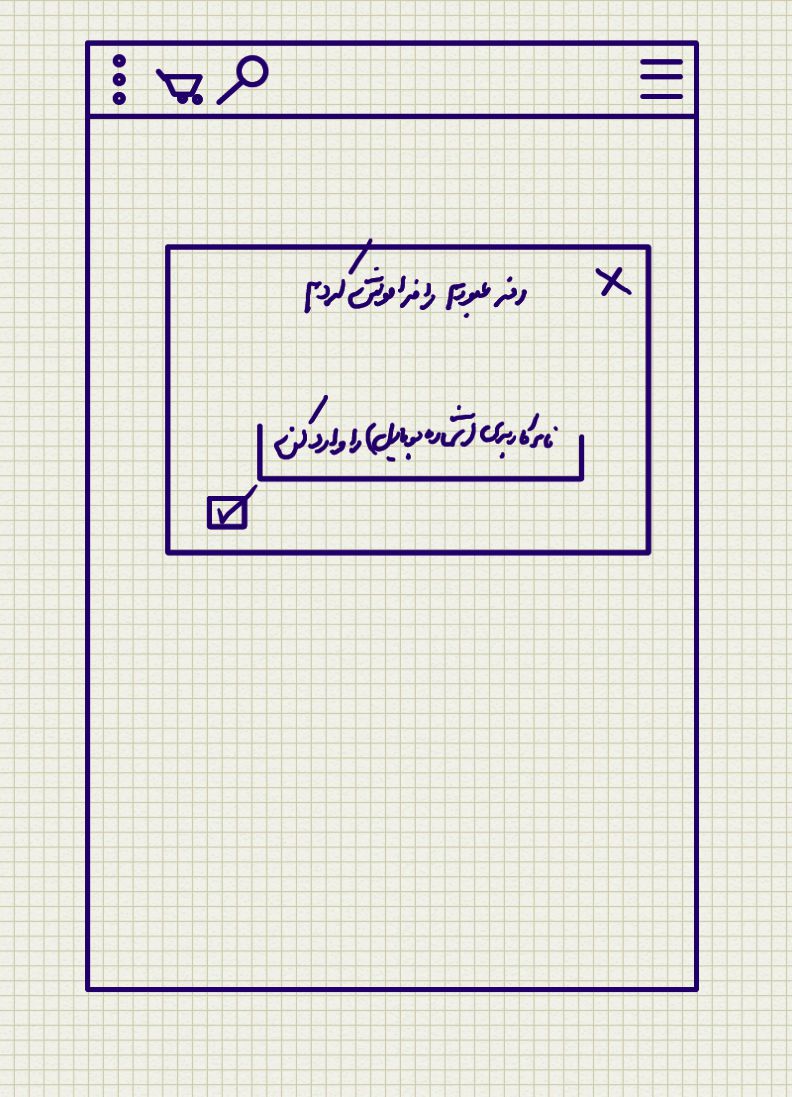 رمز عبورم را فراموش کردم
نام کاربری (شماره موبایل) را وارد کنی